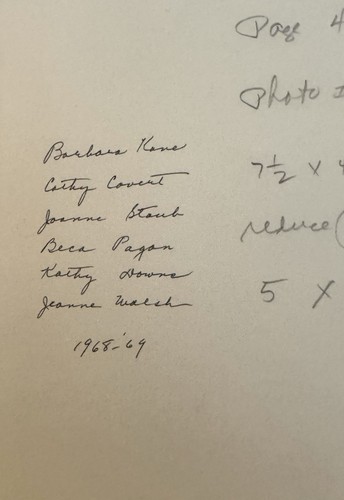 Barbara Kane
Cathy Covert
Joanne Staub
Beca Pagan
Kathy Downs
Jeanne Walsh
1968-'69
Page 4
Photo
7 1/2 X
reduce (
5 X